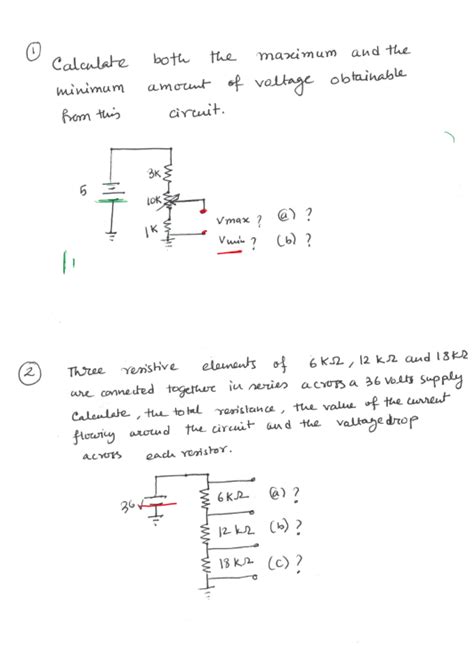 ① Calculate both the maximum and the
minimum amount of voltage obtainable
from this circuit.
3K
5
10K
Vmax ? (a) ?
1K
Vmin ? (b) ?
② Three resistive elements of 6 KΩ, 12 KΩ and 18 KΩ
are connected together in series across a 36 volts supply
Calculate, the total resistance, the value of the current
flowing around the circuit and the voltage drop
across each resistor.
36 V
6 KΩ (a) ?
12 KΩ (b) ?
18 KΩ (c) ?